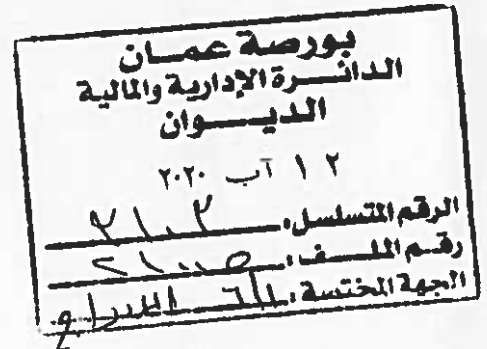 بورصة عمان
الدائرة الإدارية والمالية
الديوان
١٢ آب ٢٠٢٠
الرقم المتسلسل: ٣١٠٢
رقم الملف:
الجهة المختصة: